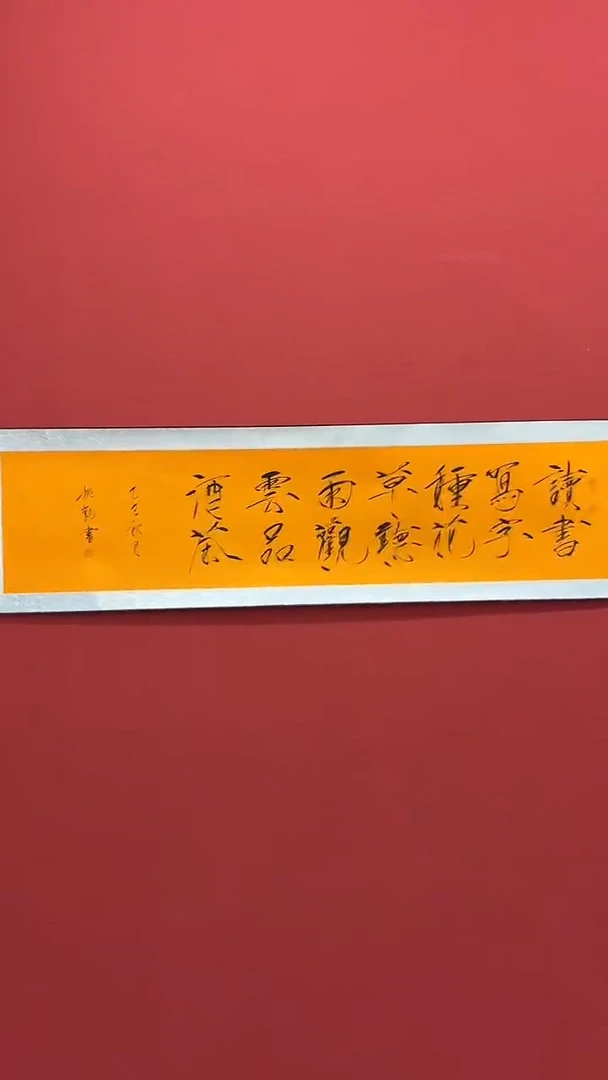 讀書
寫字
種花
草聽
雨觀
雲品
酒茶
乙巳秋月
書